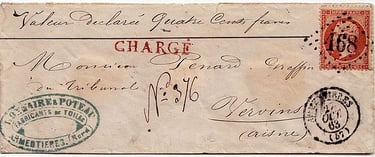 Valeur déclarée Quatre Cents francs
168
CHARGÉ
Monsieur Penard Greffier
du Tribunal
N° 376
Vervins
(Aisne)
& POTEAU
FABRICANTS DE TOILES
ARMENTIÈRES, (Nord)
ARMENTIERES
(57)